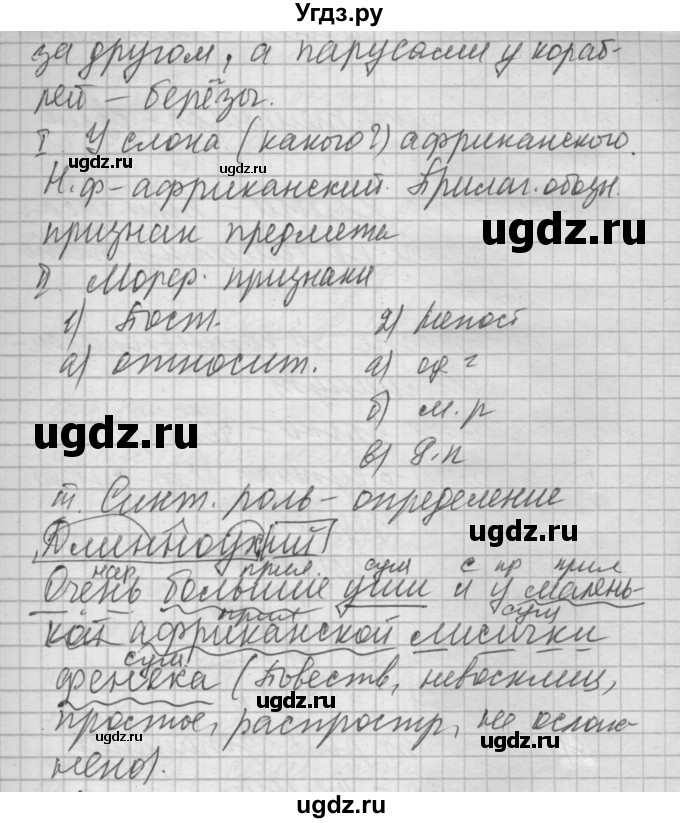 Угдз.ру
за другом, а парусами у кораб-
лей – берёзы.
I. У слона (какого?) африканского.
Н.ф – африканский. Прилаг. обозн.
признак предмета
II Морф. признаки
1) Пост. 2) Непост
а) относит. а) ед ч
б) м.р
в) Р.п
III. Синт. роль – определение
Длинноухий
нар прил. сущ с пр прил
Очень большие уши и у малень-
прил сущ
кой африканской лисички
сущ
фенека (Повеств, невосклиц,
простое, распростр, не ослож-
нено).
ugdz.ru
ugdz.ru
ugdz.ru
ugdz.ru
ugdz.ru
ugdz.ru
ugdz.ru
ugdz.ru
ugdz.ru
ugdz.ru
ugdz.ru
ugdz.ru